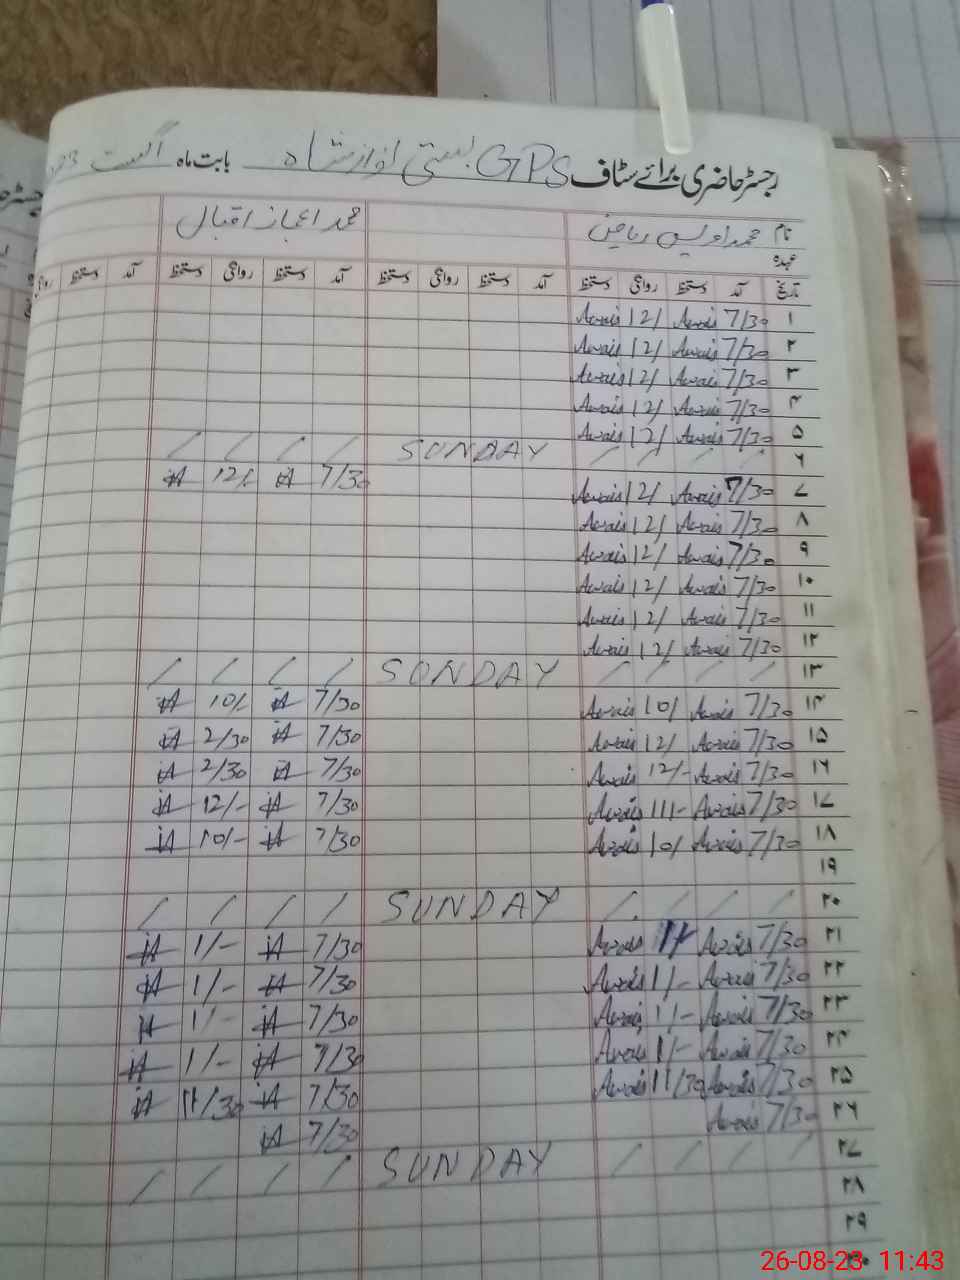 رجسٹر حاضری برائے سٹاف GPS بستی نواز شاہ بابت ماہ اگست 23
نام محمد اویس ریاض محمد اعجاز اقبال
عہدہ
تاریخ آمد دستخط روانگی دستخط آمد دستخط روانگی دستخط آمد دستخط روانگی دستخط آمد دستخط
۱ 7/30 Awais 12/ Awais
۲ 7/30 Awais 12/ Awais
۳ 7/30 Awais 12/ Awais
۴ 7/30 Awais 12/ Awais
۵ 7/30 Awais 12/ Awais
۶ / / / / SUNDAY / / / /
۷ 7/30 Awais 12/ Awais 7/30 iA 12/ iA
۸ 7/30 Awais 12/ Awais
۹ 7/30 Awais 12/ Awais
۱۰ 7/30 Awais 12/ Awais
۱۱ 7/30 Awais 12/ Awais
۱۲ 7/30 Awais 12/ Awais
۱۳ / / / / SUNDAY / / / /
۱۴ 7/30 Awais 10/ Awais 7/30 iA 10/ iA
۱۵ 7/30 Awais 12/ Awais 7/30 iA 2/30 iA
۱۶ 7/30 Awais 12/- Awais 7/30 iA 2/30 iA
۱۷ 7/30 Awais 11/- Awais 7/30 iA 12/- iA
۱۸ 7/30 Awais 10/ Awais 7/30 iA 10/- iA
۱۹
۲۰ / / / / SUNDAY / / / /
۲۱ 7/30 Awais 1/ Awais 7/30 iA 1/- iA
۲۲ 7/30 Awais 1/- Awais 7/30 iA 1/- iA
۲۳ 7/30 Awais 1/- Awais 7/30 iA 1/- iA
۲۴ 7/30 Awais 1/- Awais 7/30 iA 1/- iA
۲۵ 7/30 Awais 11/30 Awais 7/30 iA 11/30 iA
۲۶ 7/30 Awais 7/30 iA
۲۷ / / / / SUNDAY / / / /
۲۸
۲۹
۳۰
26-08-23 11:43